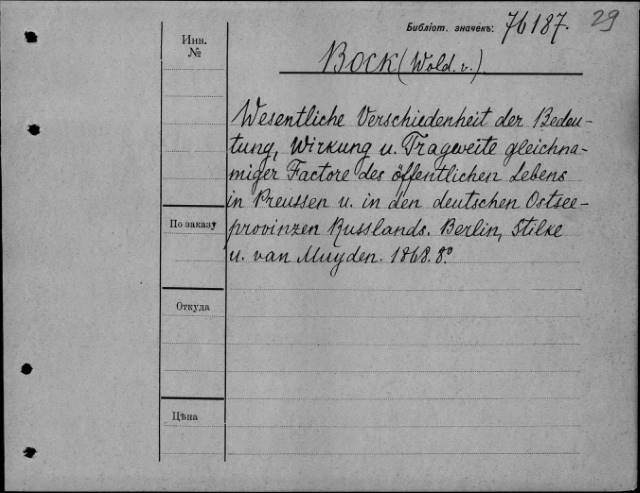 Библіот. значекъ: 76187. 29
Инв.
№
Bock (Wold. v.).
Wesentliche Verschiedenheit der Bedeu-
tung, Wirkung u. Tragweite gleichna-
miger Factore des öffentlichen Lebens
in Preussen u. in den deutschen Ostsee-
provinzen Russlands. Berlin, Stilke
u. van Muyden. 1868. 8.°
По заказу
Откуда
Цѣна